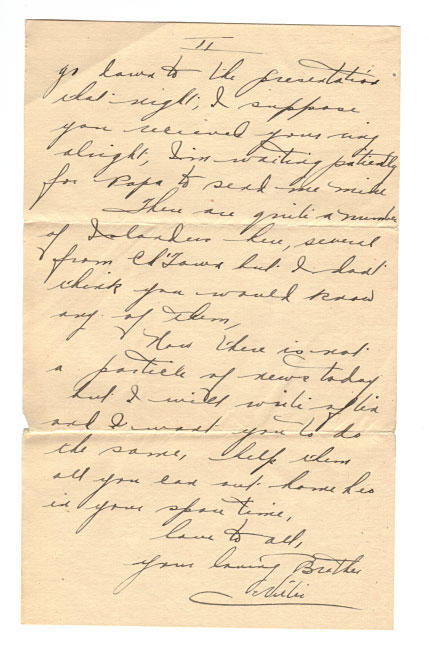 II
go down to the presentation
that night, I suppose
you recieved your ring
alright, I'm waiting patiently
for Papa to send me mine
There are quite a number
of Islanders here, several
from Ch'Town but I don't
think you would know
any of them,
Now there is not
a particle of news today
but I will write often
and I want you to do
the same, help them
all you can out home
in your spare time,
love to all,
your loving Brother